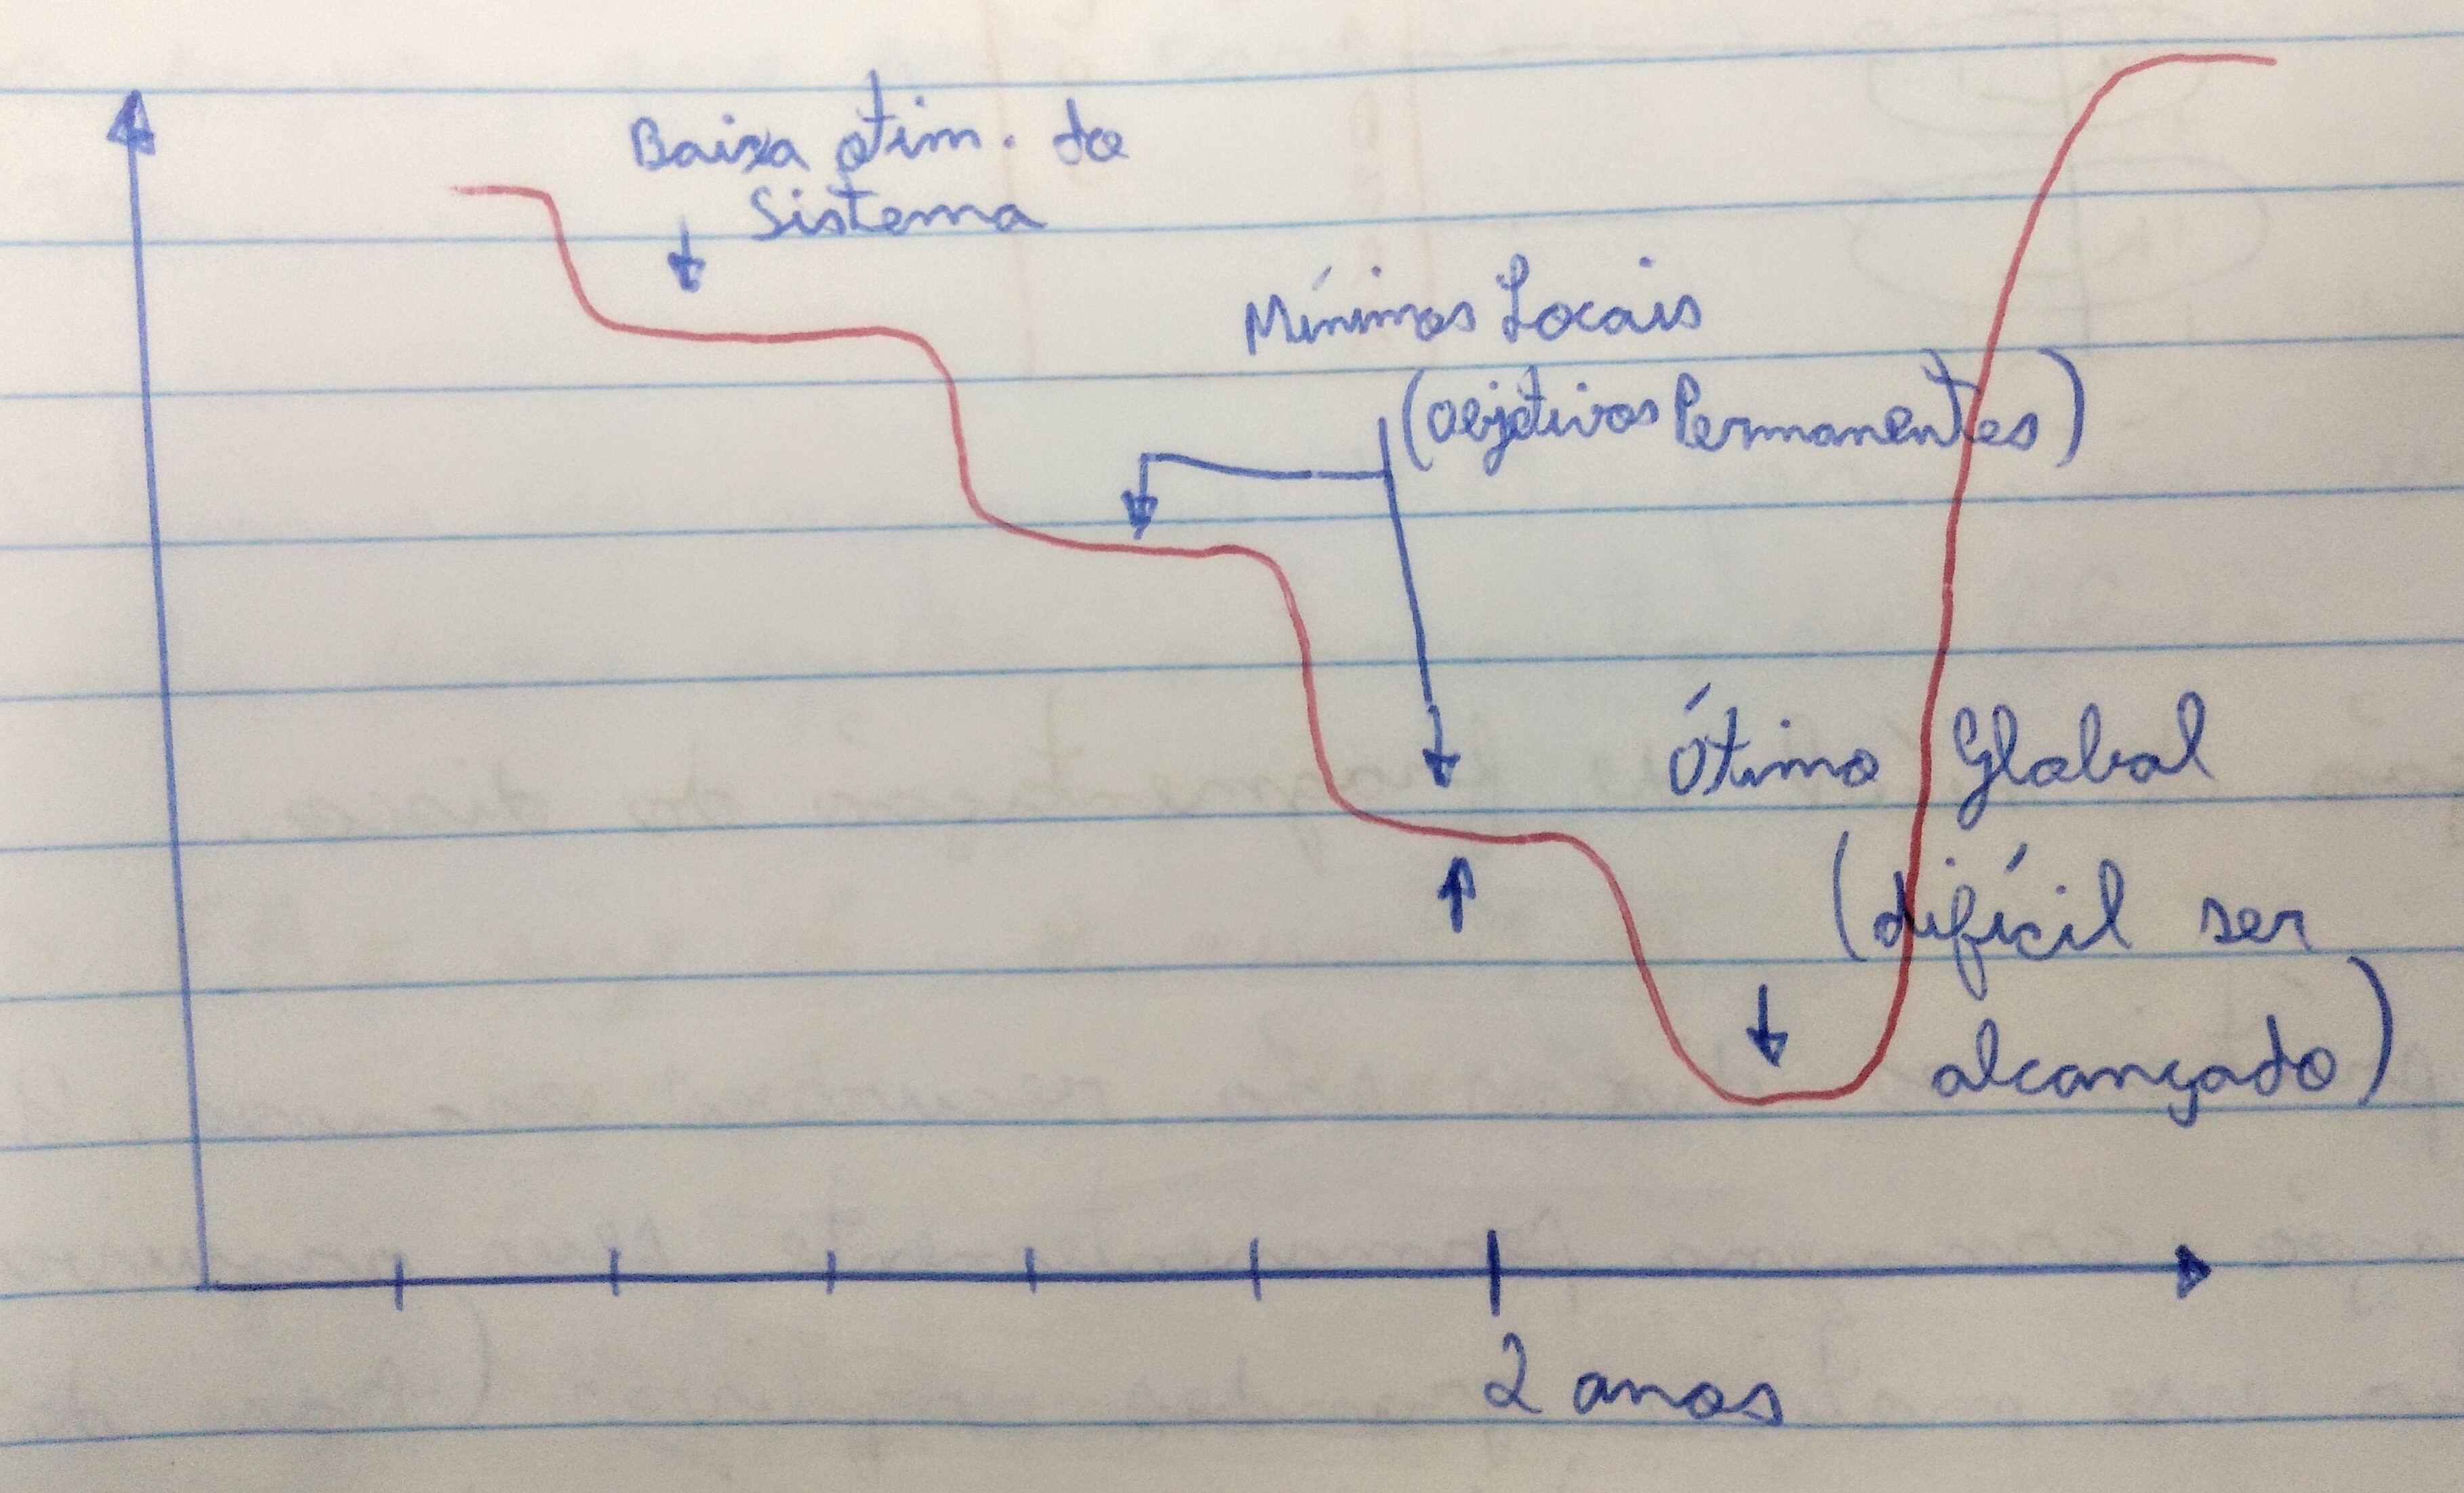 Baixa otim. do
Sistema
Mínimos Locais
(Objetivos Permanentes)
Ótimo Global
(difícil ser
alcançado)
2 anos